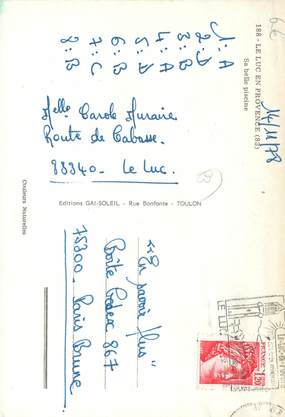 188 - LE LUC EN PROVENCE (83)
Sa belle piscine
14/11/78
1: A
2: D
3: B
4: A
5: D
6: B
7: C
8: B
Melle Carole Muraire
Route de Cabasse
83340 - Le Luc.
Editions GAI-SOLEIL - Rue Bonfante - TOULON
Couleurs Naturelles
"En savoir plus"
Boîte Codex 867
75300 - Paris Brune
FRANCE
1,20